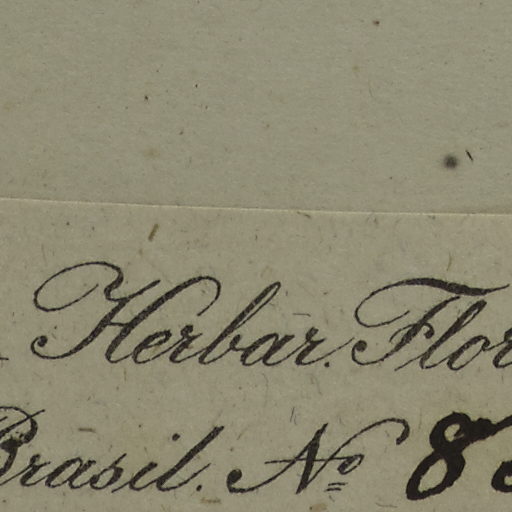 Herbar. Flor
Brasil. Nº 8